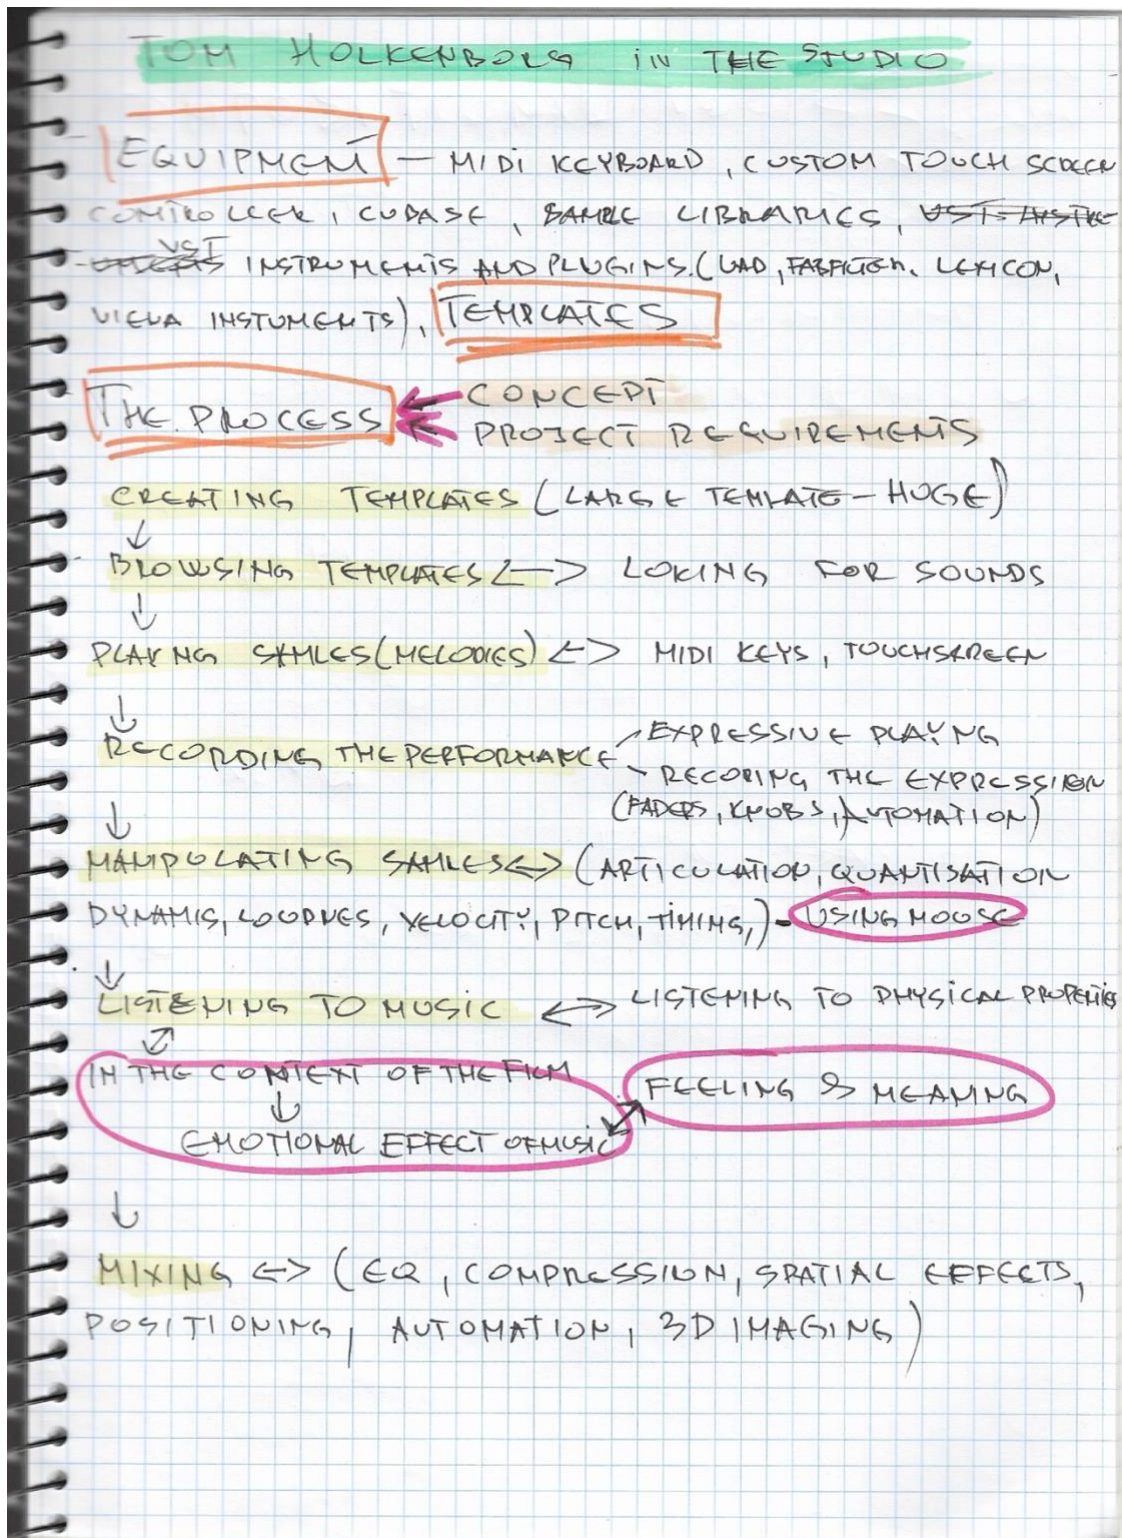 TOM HOLKENBORG IN THE STUDIO
EQUIPMENT — MIDI KEYBOARD, CUSTOM TOUCH SCREEN
CONTROLLER, CUBASE, SAMPLE LIBRARIES,
VST
INSTRUMENTS AND PLUGINS. (UAD, FABFILTER, LEXICON,
VIENA INSTUMENTS), TEMPLATES
THE PROCESS ← CONCEPT
← PROJECT REQUIREMENTS
CREATING TEMPLATES (LARGE TEMLATE - HUGE)
↓
BROWSING TEMPLATES <—> LOKING FOR SOUNDS
↓
PLAYNG SAMLES (MELODIES) <-> MIDI KEYS, TOUCHSKREEN
↓
RECORDING THE PERFORMANCE - EXPRESSIVE PLAYNG
- RECORING THE EXPRESSION
(FADERS, KNOBS, AUTOMATION)
↓
MANIPULATING SAMLES <-> (ARTICULATION, QUANTISATION
DYNAMIS, LOUDNES, VELOCITY, PITCH, TIMING,) - USING MOUSE
↓
LISTENING TO MUSIC <-> LISTENING TO PHYSICAL PROPERTIES
IN THE CONTEXT OF THE FILM
↓
EMOTIONAL EFFECT OF MUSIC
FEELING & MEANING
↓
MIXING <-> (EQ, COMPRESSION, SPATIAL EFFECTS,
POSITIONING, AUTOMATION, 3D IMAGING)